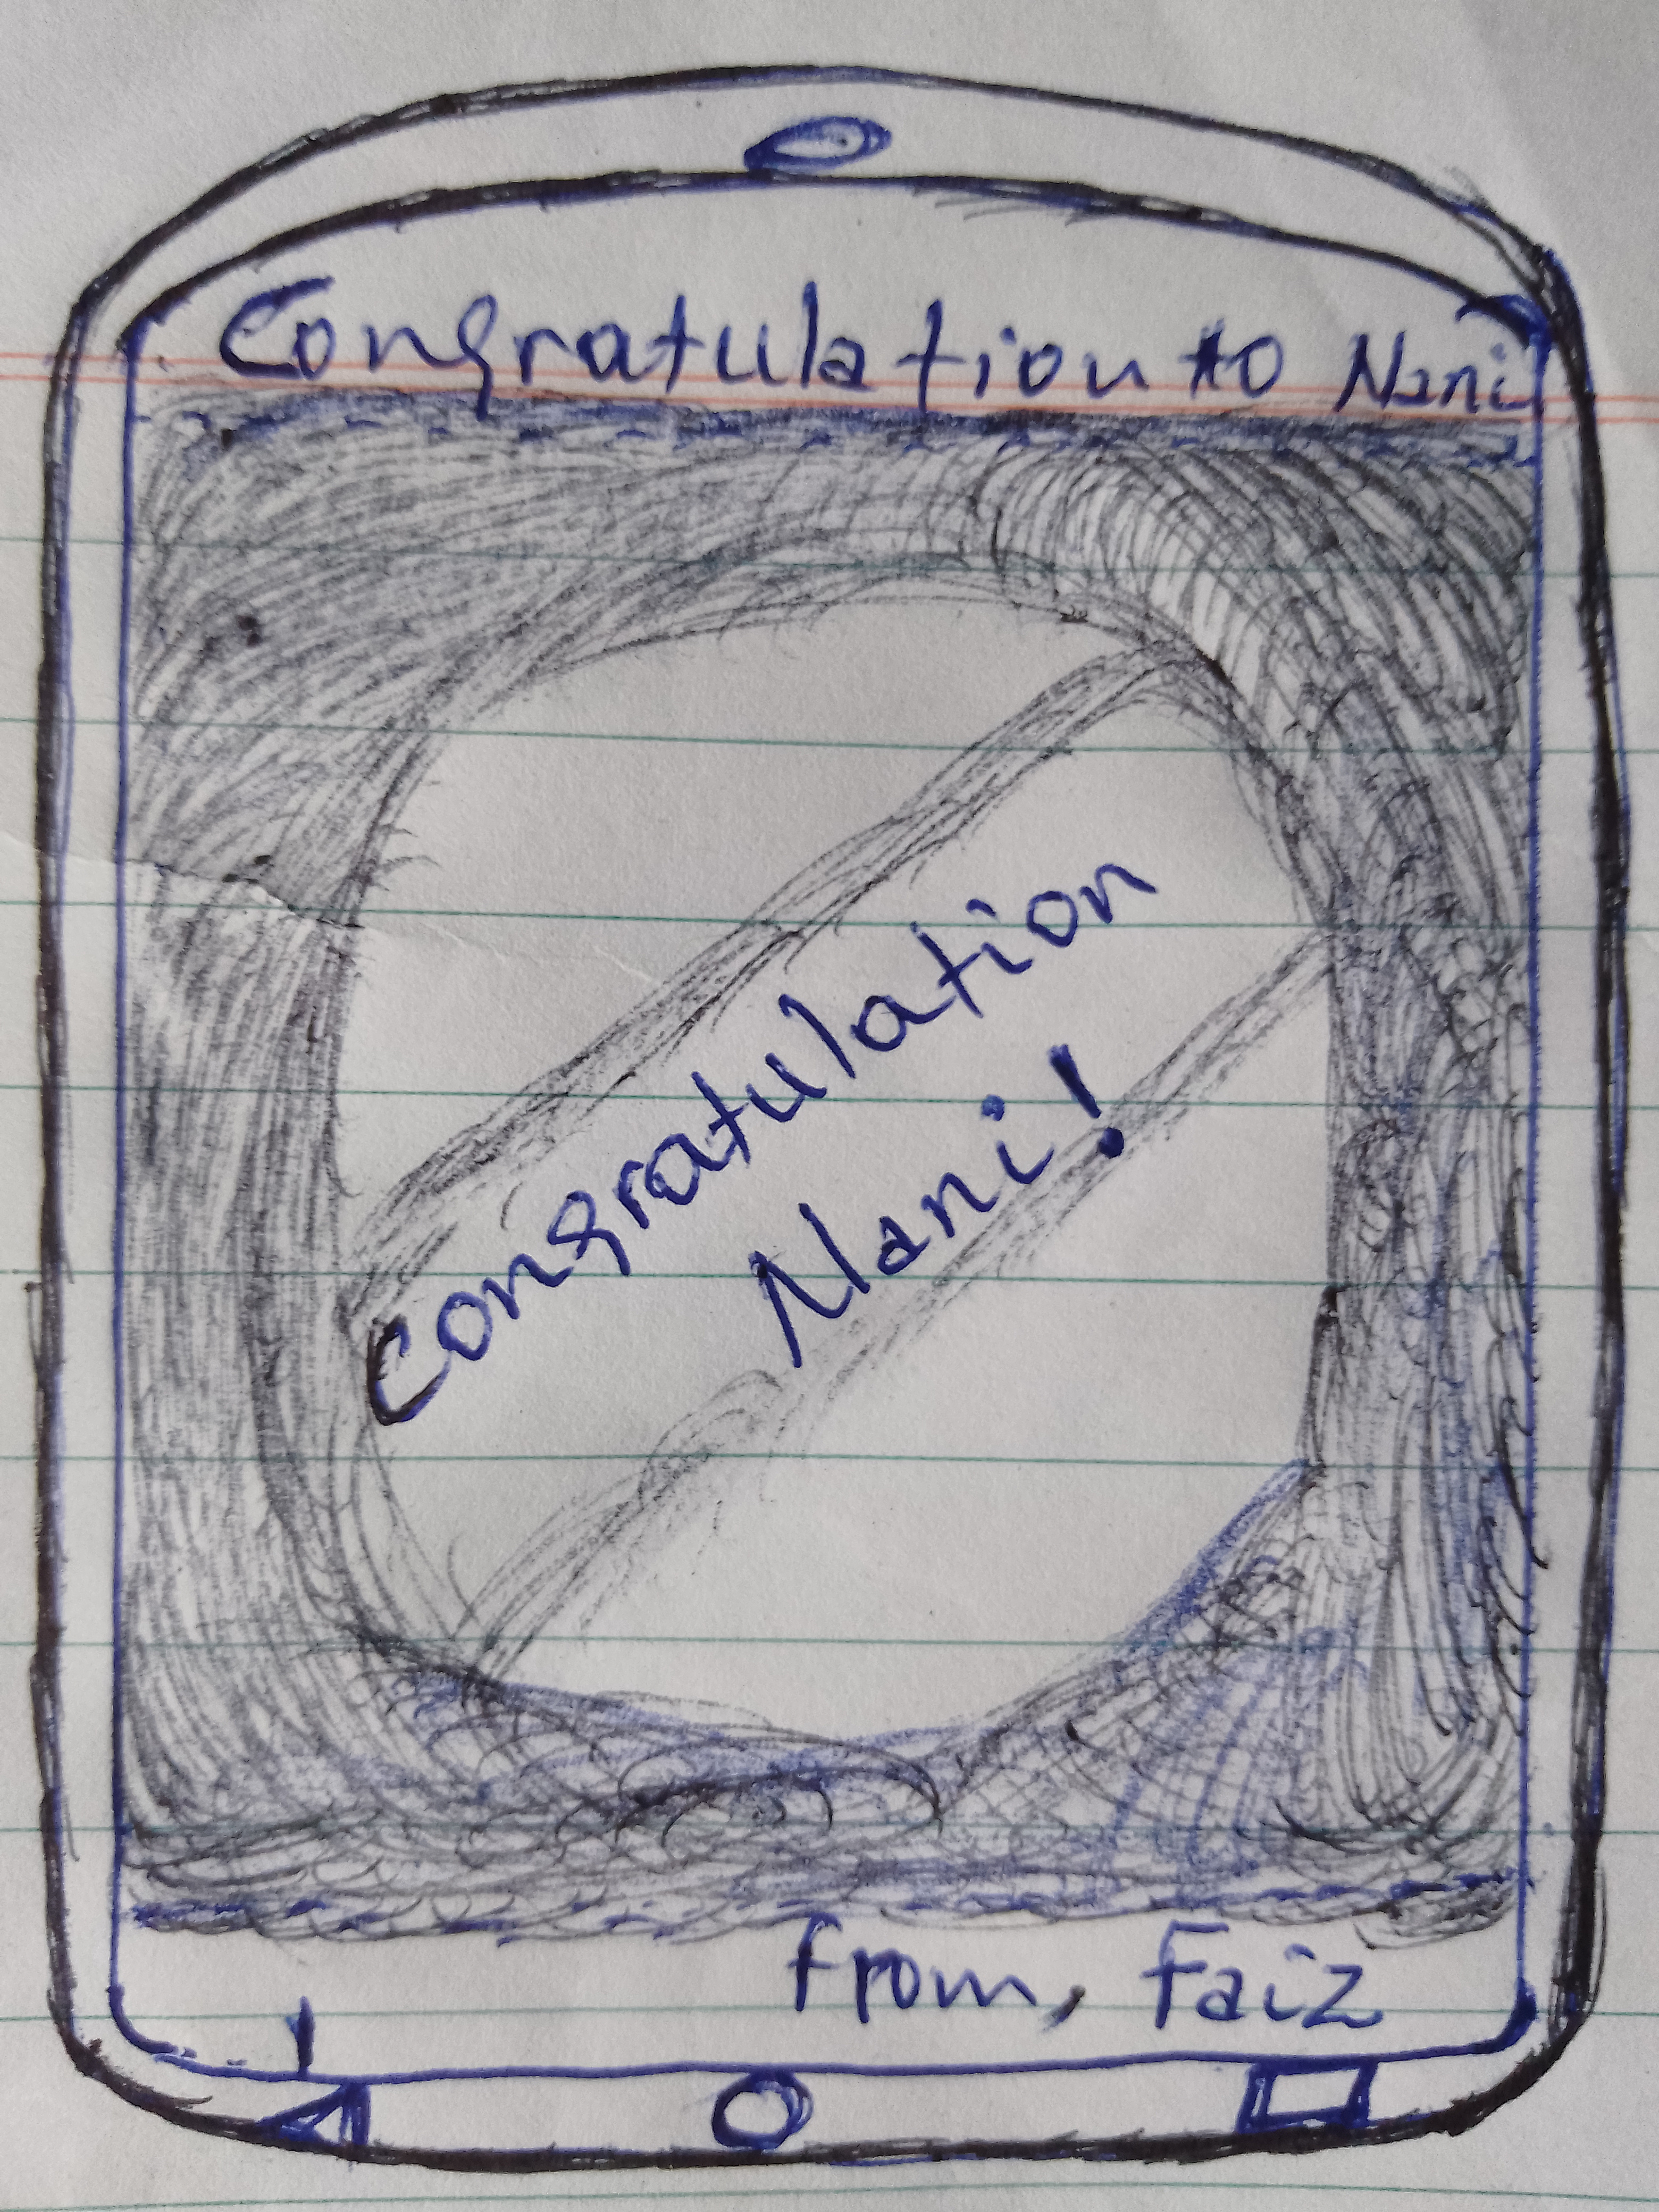 Congratulation to Nani
Congratulation
Nani!
from, Faiz